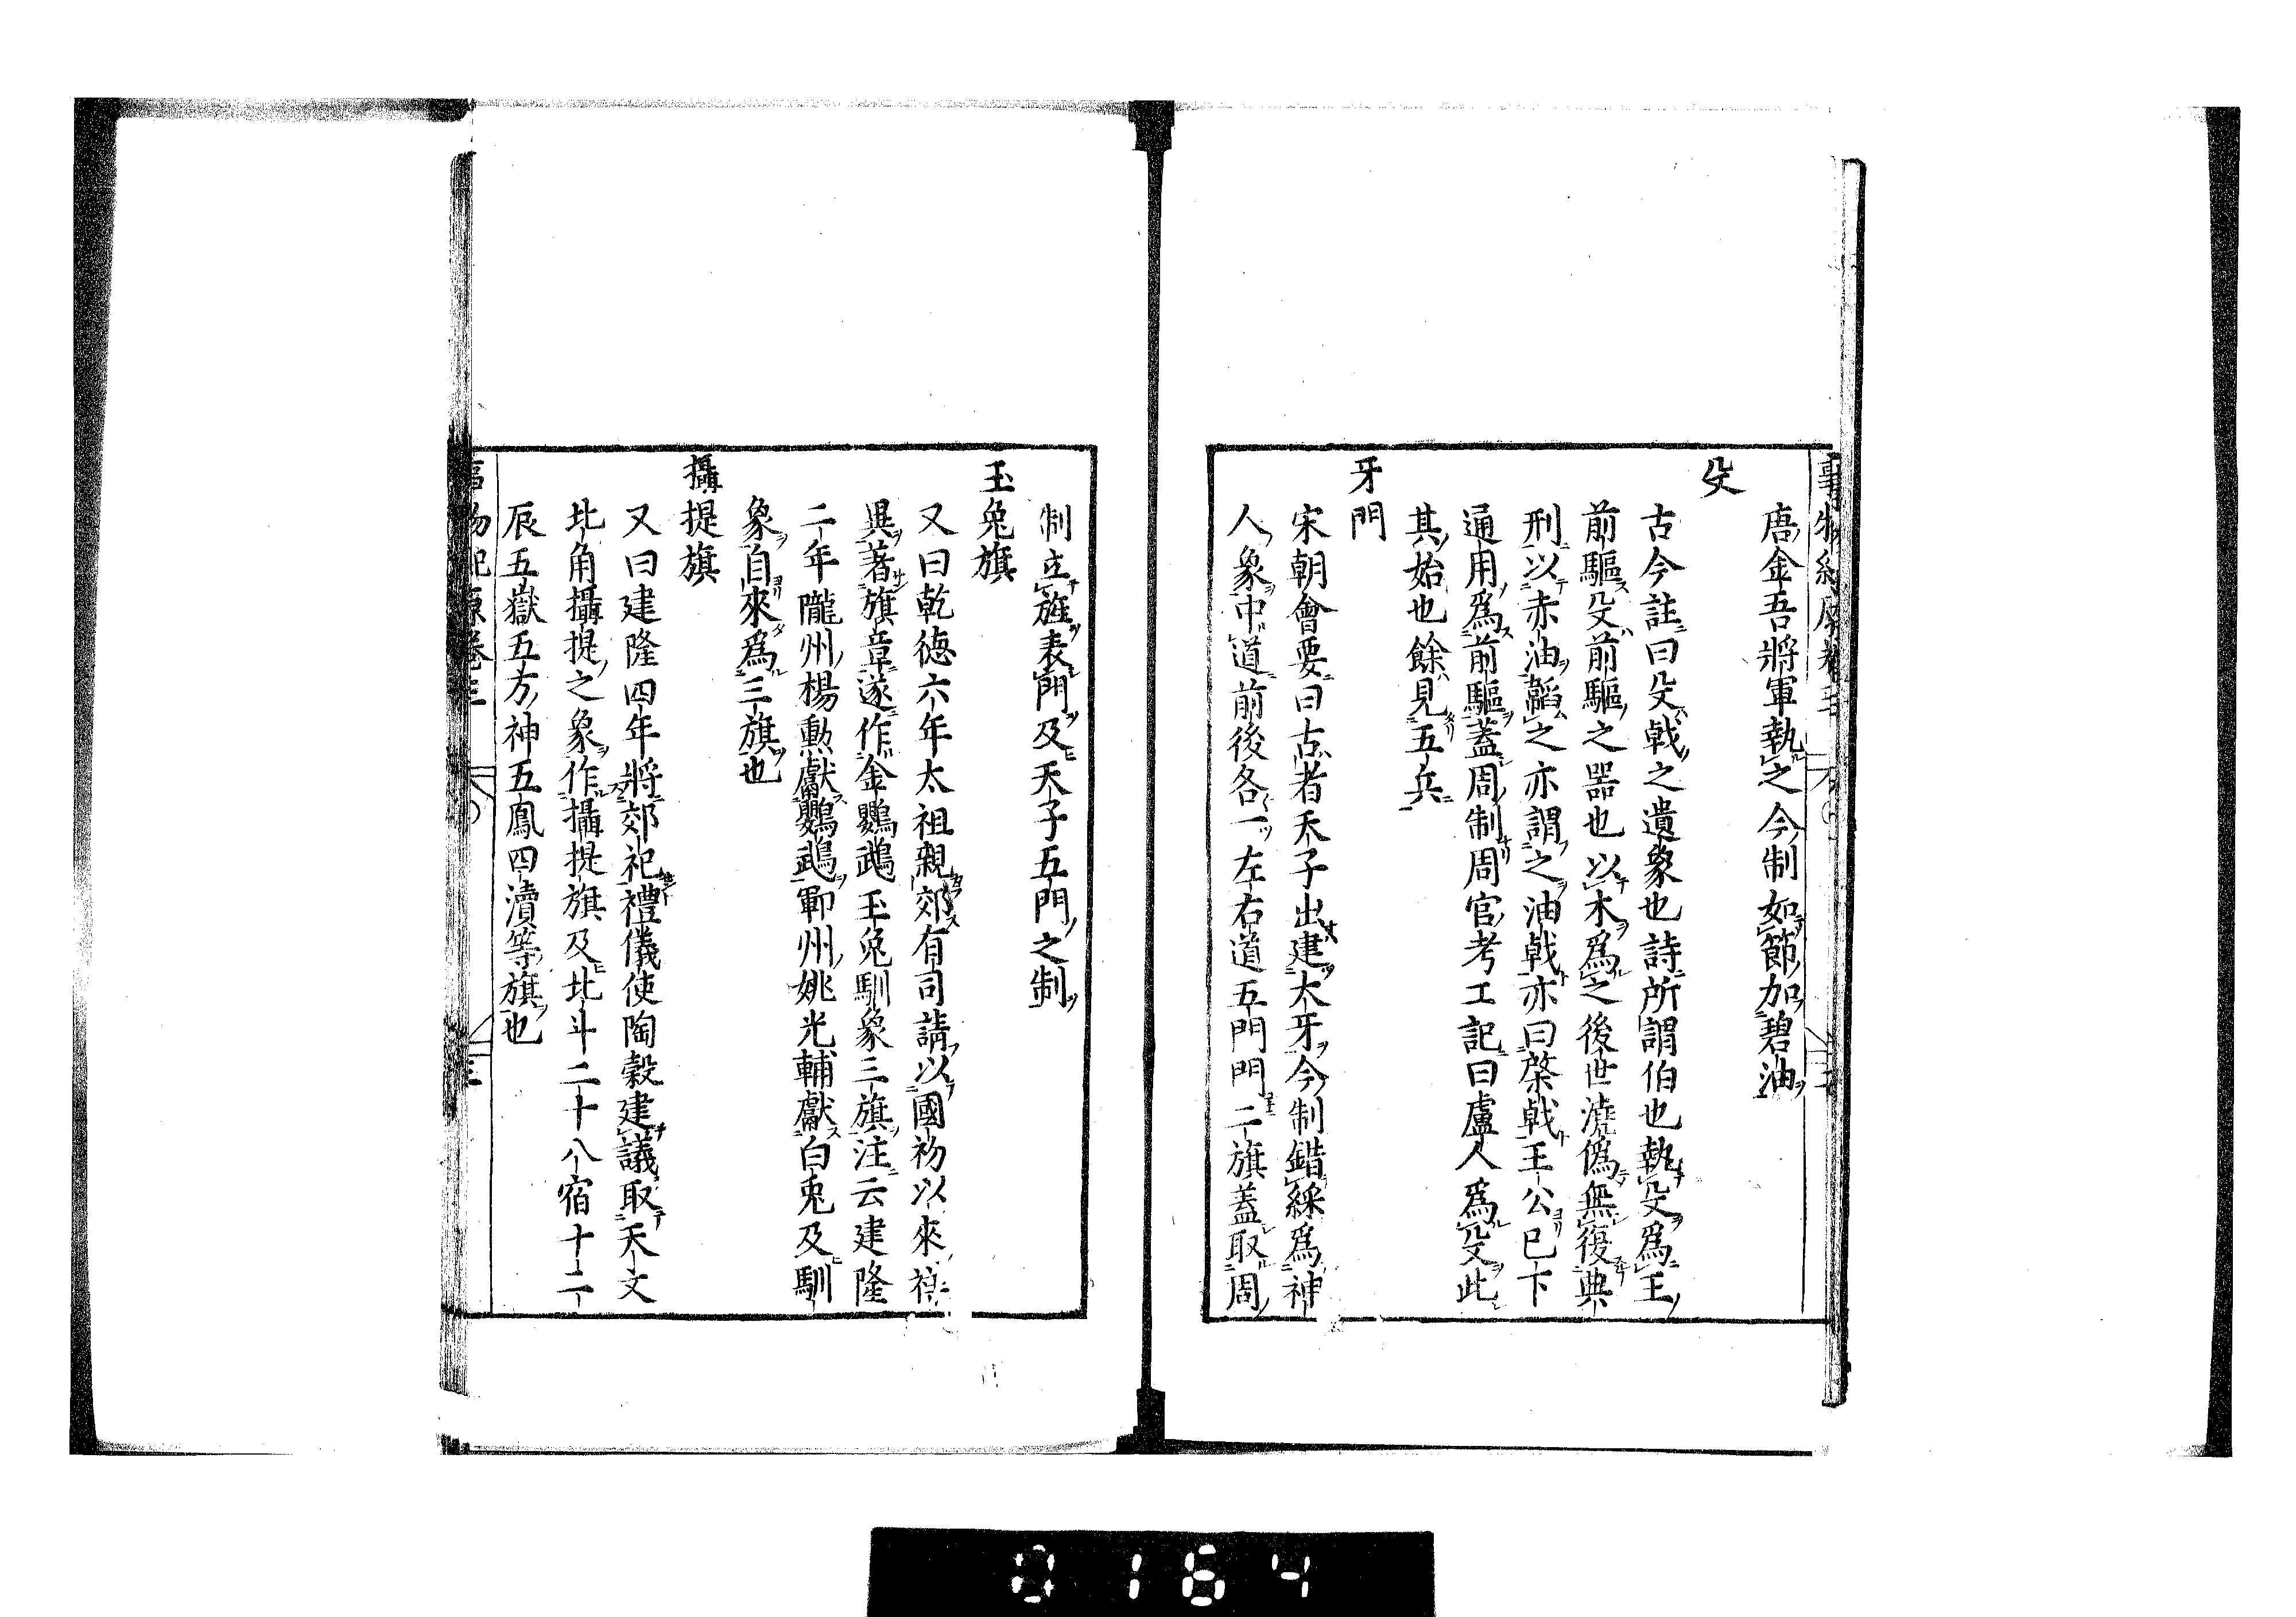 唐金吾將軍執之今制如節加碧油
殳
古今註曰殳戟之遺象也詩所謂伯也執殳爲王
前驅殳前驅之噐也以木爲之後世澆僞無復典
刑以赤油韜之亦謂之油戟亦曰棨戟王公已下
通用爲前驅蓋周制周官考工記曰盧人爲殳此
其始也餘見五兵
牙門
宋朝會要曰古者天子出建大牙今制錯綵爲神
人象中道前後各一左右道五門門二旗蓋取周
制立旌表門及天子五門之制
玉兔旗
又曰乾德六年太祖親郊有司請以國初以來祥
異著旗章遂作金鸚鵡玉兔馴象三旗注云建隆
二年隴州楊勲獻鸚鵡鄆州姚光輔獻白兎及馴
象自來爲三旗也
攝提旗
又曰建隆四年將郊祀禮儀使陶穀建議取天文
北角攝提之象作攝提旗及北斗二十八宿十二
辰五嶽五方神五鳳四瀆等旗也
事物紀原卷三
0164